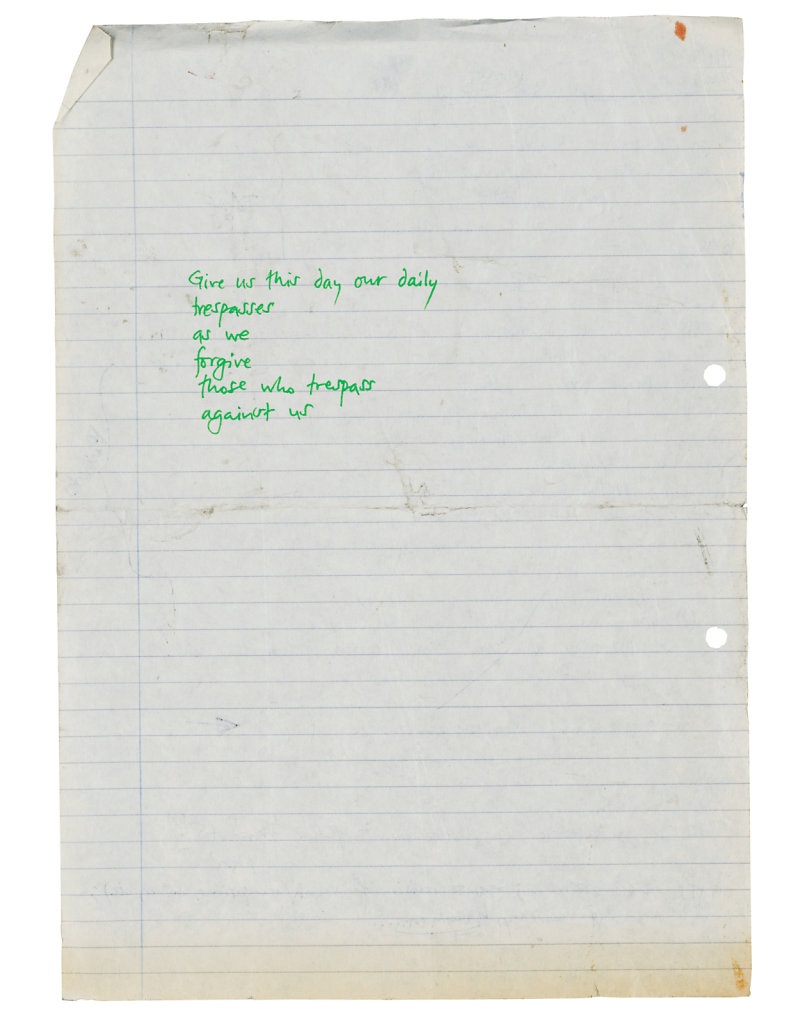 Give us this day our daily
trespasses
as we
forgive
those who trespass
against us